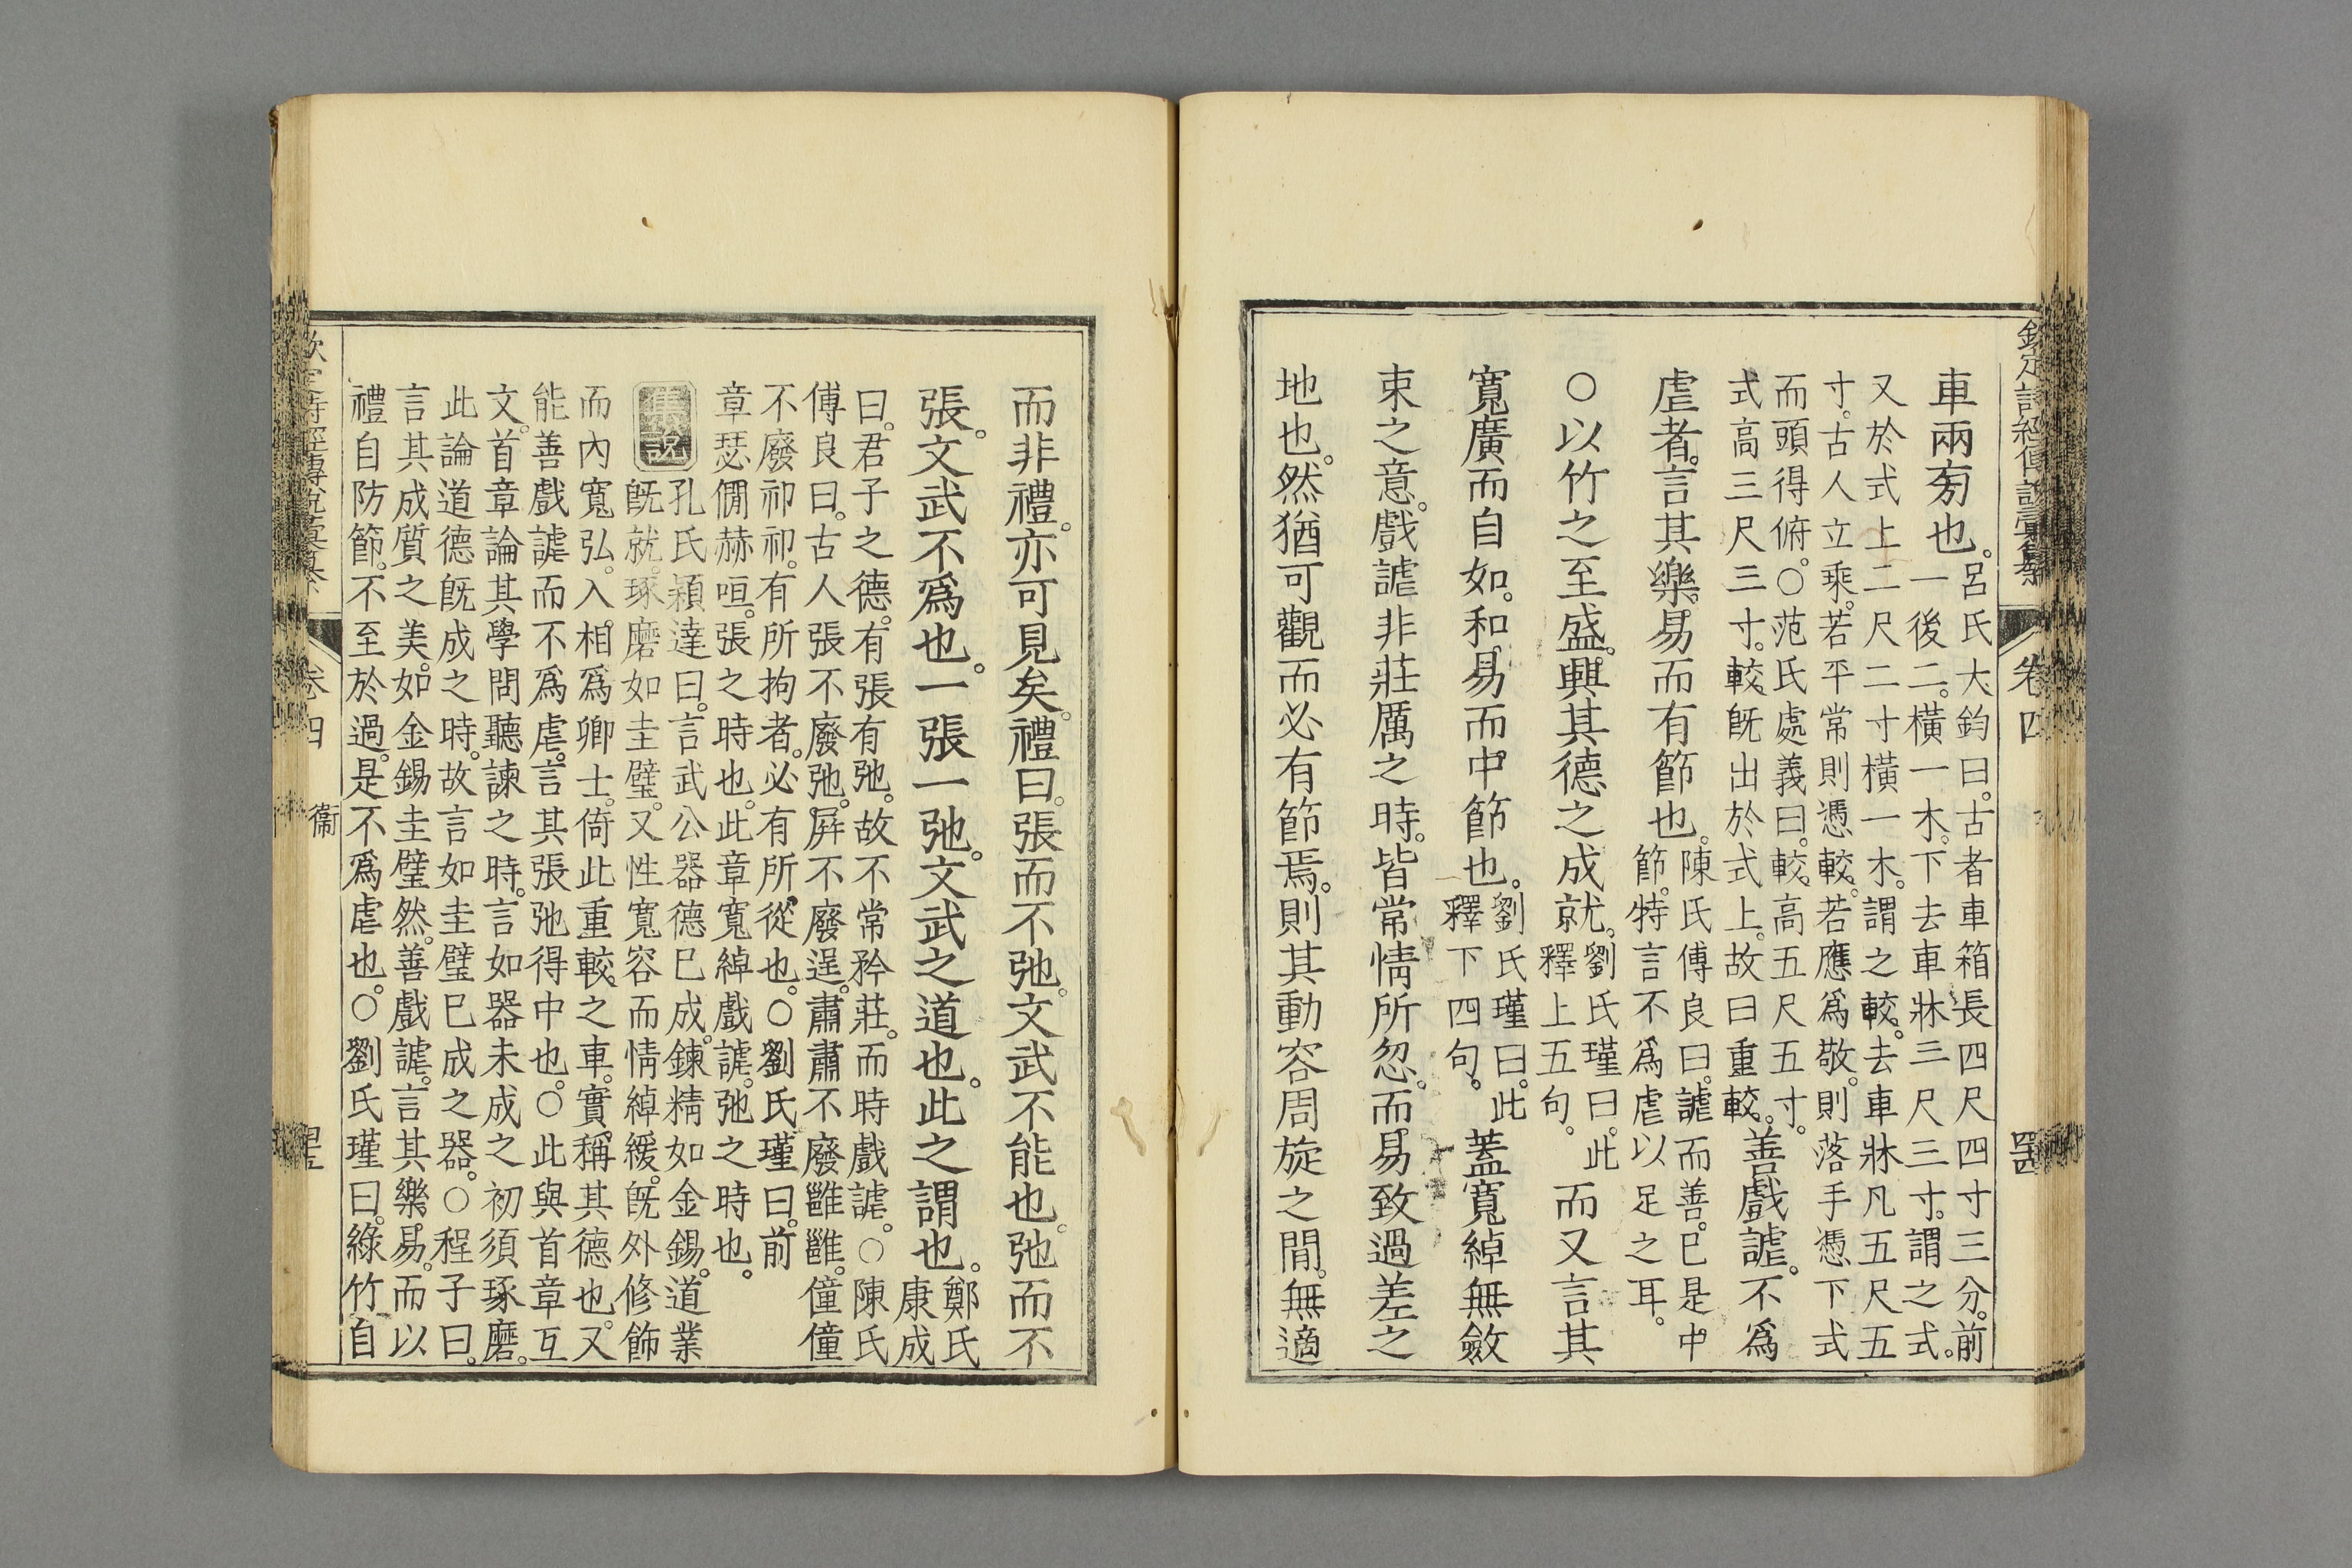 車兩旁也。呂氏大鈞曰。古者車箱長四尺四寸三分。前
一後二。橫一木。下去車牀三尺三寸。謂之式。
又於式上二尺二寸橫一木。謂之較。去車牀凡五尺五
寸。古人立乘。若平常則憑較。若應爲敬。則落手憑下式
而頭得俯。○范氏處義曰。較高五尺五寸。
式高三尺三寸。較旣出於式上。故曰重較。善戲謔。不爲
虐者。言其樂易而有節也。陳氏傅良曰。謔而善。已是中
節。特言不爲虐以足之耳。
○以竹之至盛。興其德之成就。劉氏瑾曰。此
釋上五句。而又言其
寬廣而自如。和易而中節也。劉氏瑾曰。此
釋下四句。蓋寬綽無斂
束之意。戲謔非莊厲之時。皆常情所忽。而易致過差之
地也。然猶可觀而必有節焉。則其動容周旋之間。無適
卷四
而非禮。亦可見矣。禮曰。張而不弛。文武不能也。弛而不
張。文武不爲也。一張一弛。文武之道也。此之謂也。鄭氏
康成
曰。君子之德。有張有弛。故不常矜莊。而時戲謔。○陳氏
傅良曰。古人張不廢弛。屛不廢逞。肅肅不廢雝雝。僮僮
不廢祁祁。有所拘者。必有所從也。○劉氏瑾曰。前
章瑟僩赫咺。張之時也。此章寬綽戲謔。弛之時也。
集說
孔氏穎達曰。言武公器德已成。鍊精如金錫。道業
旣就。琢磨如圭璧。又性寬容而情綽緩。旣外修飾
而內寬弘。入相爲卿士。倚此重較之車。實稱其德也。又
能善戲謔而不爲虐。言其張弛得中也。○此與首章互
文。首章論其學問聽諫之時。言如器未成之初須琢磨。
此論道德旣成之時。故言如圭璧已成之器。○程子曰。
言其成質之美。如金錫圭璧然。善戲謔。言其樂易。而以
禮自防節。不至於過。是不爲虐也。○劉氏瑾曰。綠竹自
衞